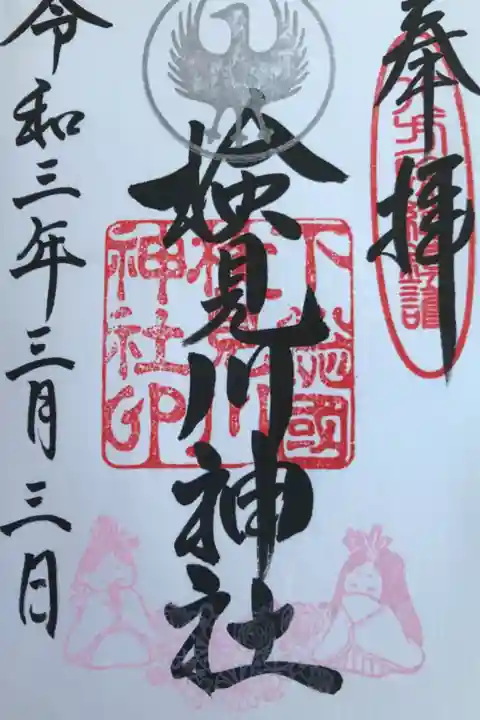 奉拝
検見川神社
下総國
検見川
神社印
令和三年三月三日